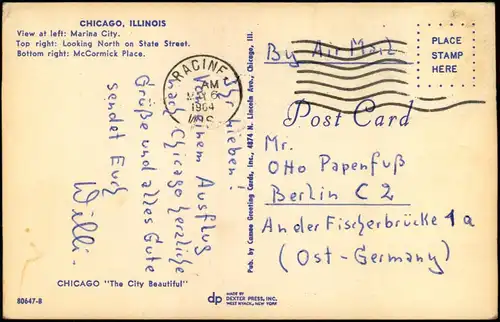 CHICAGO, ILLINOIS
View at left: Marina City.
Top right: Looking North on State Street.
Bottom right: McCormick Place.
Ihr Lieben!
Von einem Ausflug
nach Chicago herzliche
Grüße und alles Gute
sendet Euch
Willi.
CHICAGO "The City Beautiful"
80647-B
RACINE
AM
MAY 6
1964
WIS
Pub. by Cameo Greeting Cards, Inc., 4874 N. Lincoln Ave., Chicago, Ill.
By Air Mail
PLACE
STAMP
HERE
Post Card
Mr.
Otto Papenfuß
Berlin C 2
An der Fischerbrücke 1a
(Ost-Germany)
dp
MADE BY
DEXTER PRESS, INC.
WEST NYACK, NEW YORK